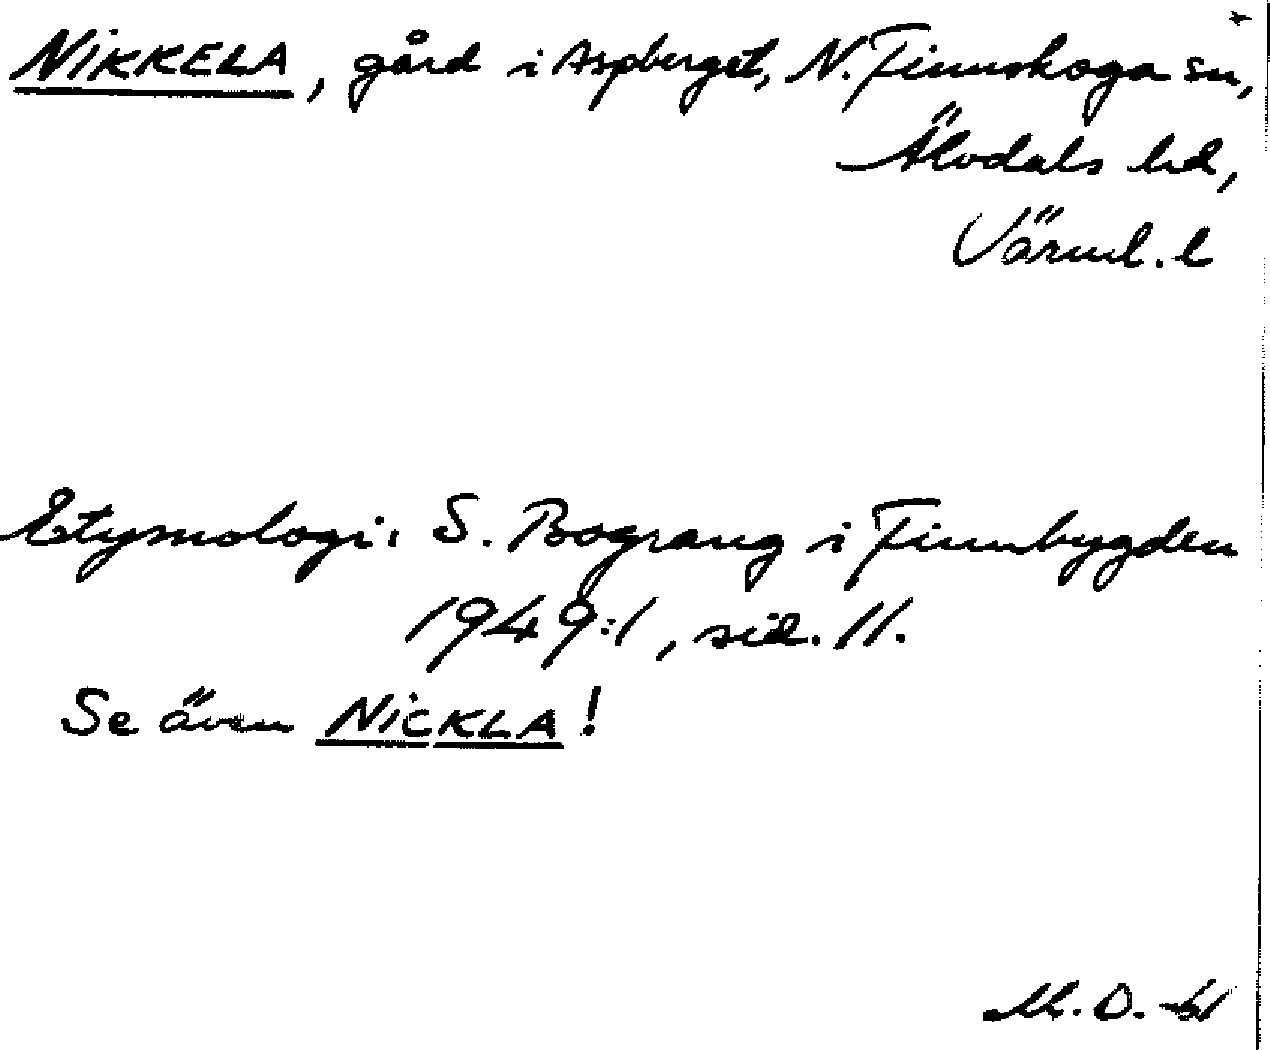 NIKKELA, gård i Aspberget, N. Finnskoga sn,
Älvdals hd,
Värml. l
Etymologi: S. Bograng i Finnbygden
1949:1, sid. 11.
Se även NICKLA!
M. O. -61